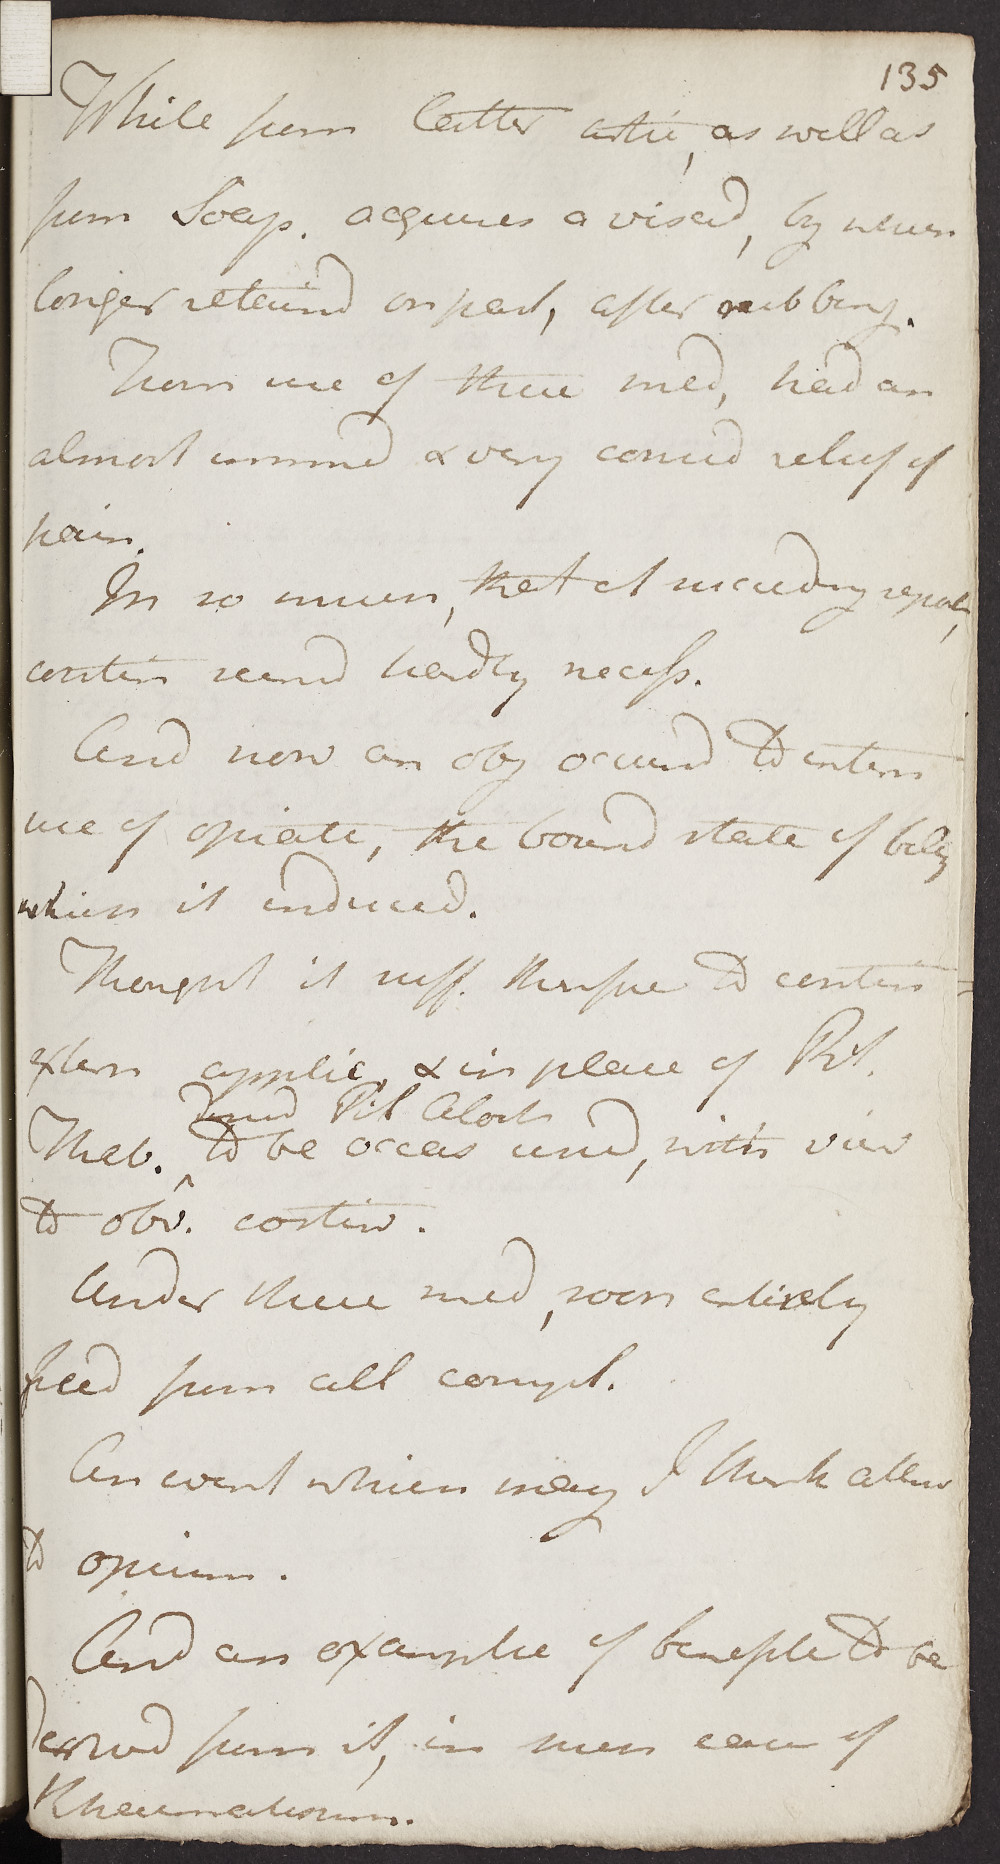 135
While from latter active, as well as
from Soap. acquires a viscid, by which
longer retaind on part, after rubbing.
From use of these med, had an
almost immed & very consid relief of
pain.
In so much, that at succeeding report,
contin seemd hardly necess.
And now an obj occurrd to intern
use of opiate, the bound state of belly
which it induced.
Thought it suff. therefore to contin
extern applic, & in place of Pil.
Pil Aloet
Theb. to be occas used, with view
to obv. costiv.
Under these med, soon entirely
freed from all compl.
An event which may I think attrib
to opium.
And an example of benefite to be
derived from it, in such case of
Rheumatism.